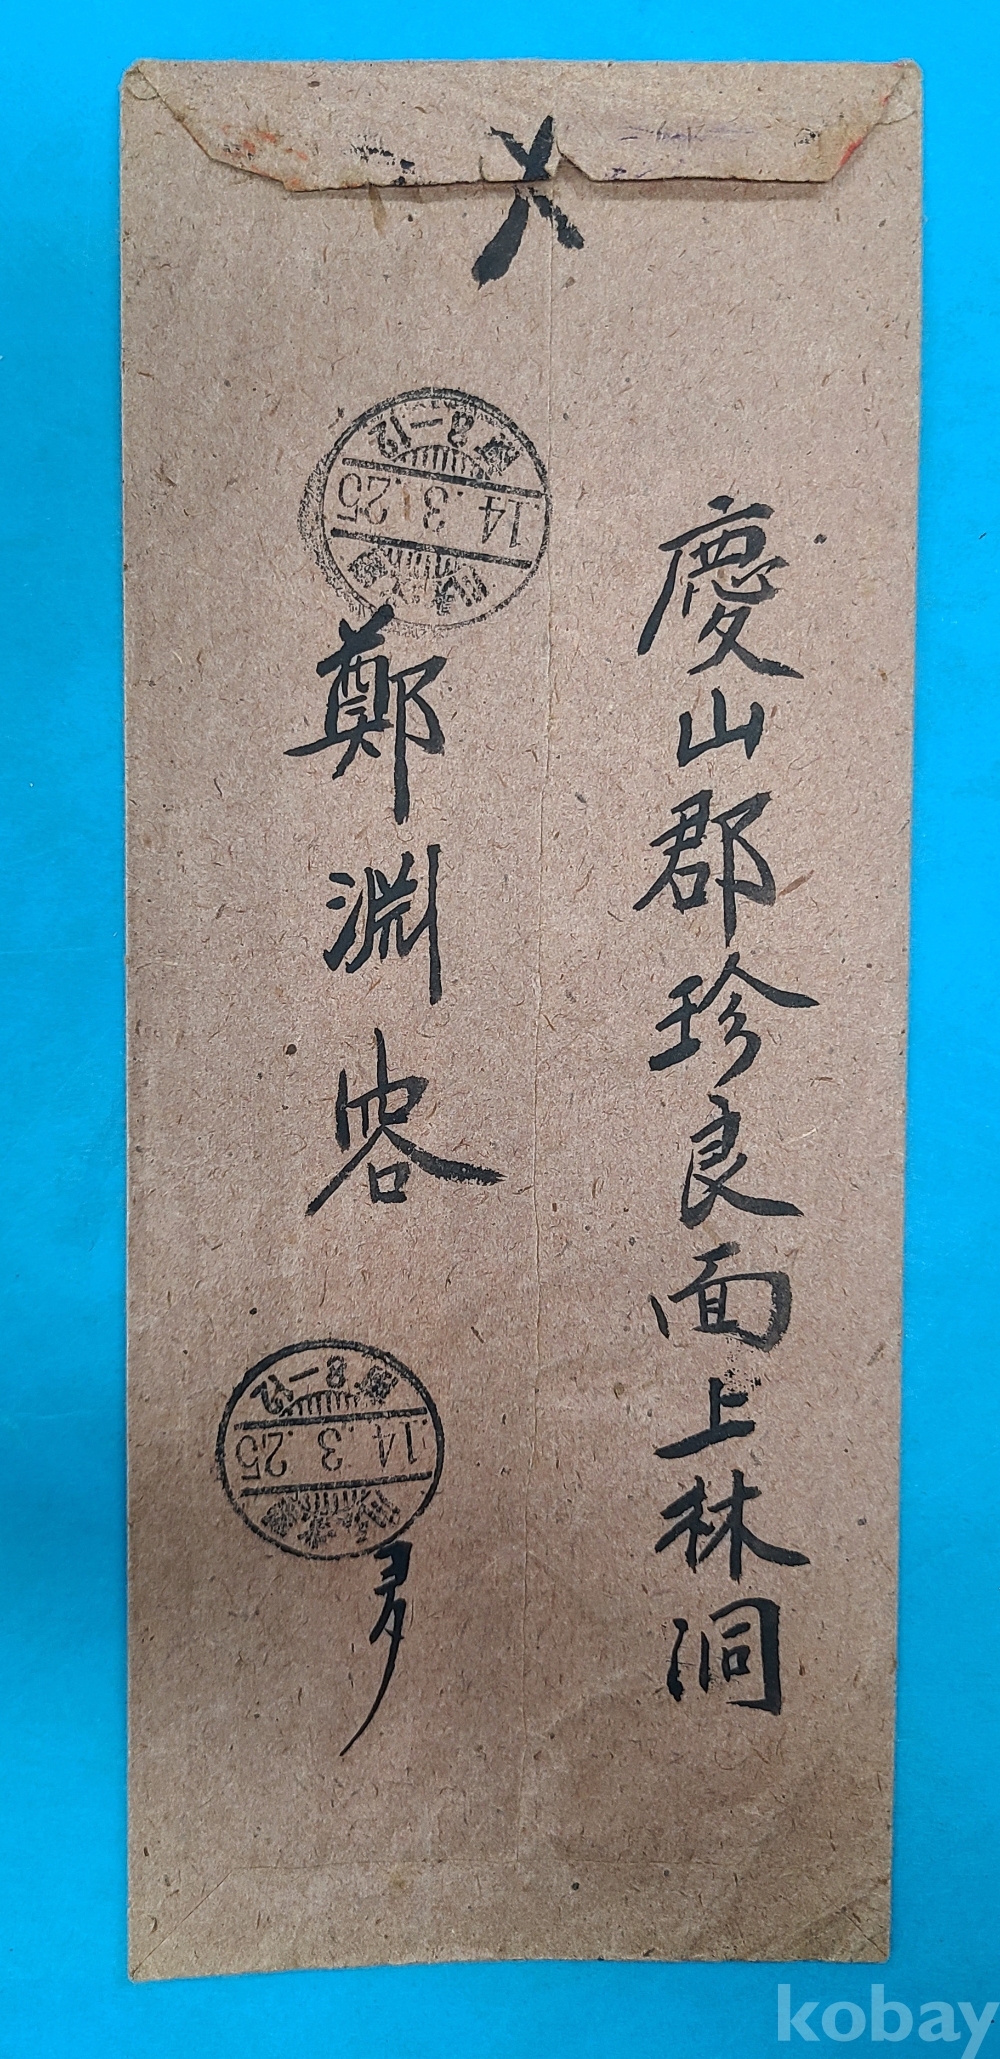 慶山郡珍良面上林洞
鄭淵容
14.3.25
8-12
14.3.25
8-12
kobay